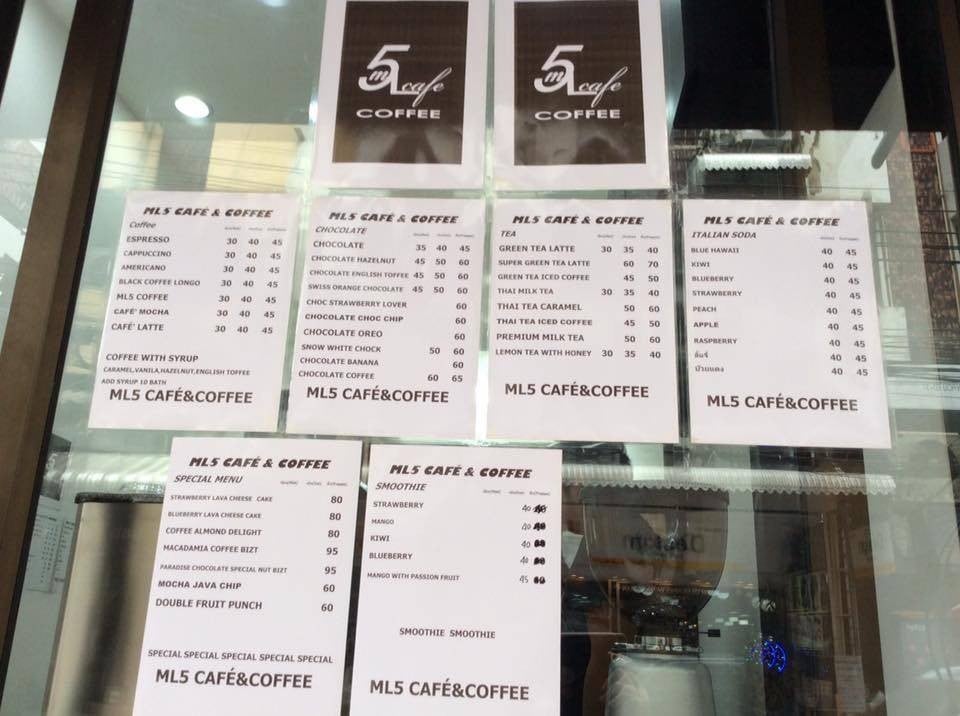 5
mL cafe
COFFEE
5
mL cafe
COFFEE
ML5 CAFÉ & COFFEE
Coffee
ESPRESSO 30 40 45
CAPPUCCINO 30 40 45
AMERICANO 30 40 45
BLACK COFFEE LONGO 30 40 45
ML5 COFFEE 30 40 45
CAFÉ' MOCHA 30 40 45
CAFÉ' LATTE 30 40 45
COFFEE WITH SYRUP
CARAMEL,VANILA,HAZELNUT,ENGLISH TOFFEE
ADD SYRUP 10 BATH
ML5 CAFÉ&COFFEE
ML5 CAFÉ & COFFEE
CHOCOLATE
CHOCOLATE 35 40 45
CHOCOLATE HAZELNUT 45 50 60
CHOCOLATE ENGLISH TOFFEE 45 50 60
SWISS ORANGE CHOCOLATE 45 50 60
CHOC STRAWBERRY LOVER 60
CHOCOLATE CHOC CHIP 60
CHOCOLATE OREO 60
SNOW WHITE CHOCK 50 60
CHOCOLATE BANANA 60
CHOCOLATE COFFEE 60 65
ML5 CAFÉ&COFFEE
ML5 CAFÉ & COFFEE
TEA
GREEN TEA LATTE 30 35 40
SUPER GREEN TEA LATTE 60 70
GREEN TEA ICED COFFEE 45 50
THAI MILK TEA 30 35 40
THAI TEA CARAMEL 50 60
THAI TEA ICED COFFEE 45 50
PREMIUM MILK TEA 50 60
LEMON TEA WITH HONEY 30 35 40
ML5 CAFÉ&COFFEE
ML5 CAFÉ & COFFEE
ITALIAN SODA
BLUE HAWAII 40 45
KIWI 40 45
BLUEBERRY 40 45
STRAWBERRY 40 45
PEACH 40 45
APPLE 40 45
RASPBERRY 40 45
ลิ้นจี่ 40 45
บ๊วยแดง 40 45
ML5 CAFÉ&COFFEE
ML5 CAFÉ & COFFEE
SPECIAL MENU
STRAWBERRY LAVA CHEESE CAKE 80
BLUEBERRY LAVA CHEESE CAKE 80
COFFEE ALMOND DELIGHT 80
MACADAMIA COFFEE BIZT 95
PARADISE CHOCOLATE SPECIAL NUT BIZT 95
MOCHA JAVA CHIP 60
DOUBLE FRUIT PUNCH 60
SPECIAL SPECIAL SPECIAL SPECIAL SPECIAL
ML5 CAFÉ&COFFEE
ML5 CAFÉ & COFFEE
SMOOTHIE
STRAWBERRY 40
MANGO 40
KIWI 40
BLUEBERRY 40
MANGO WITH PASSION FRUIT 45
SMOOTHIE SMOOTHIE
ML5 CAFÉ&COFFEE